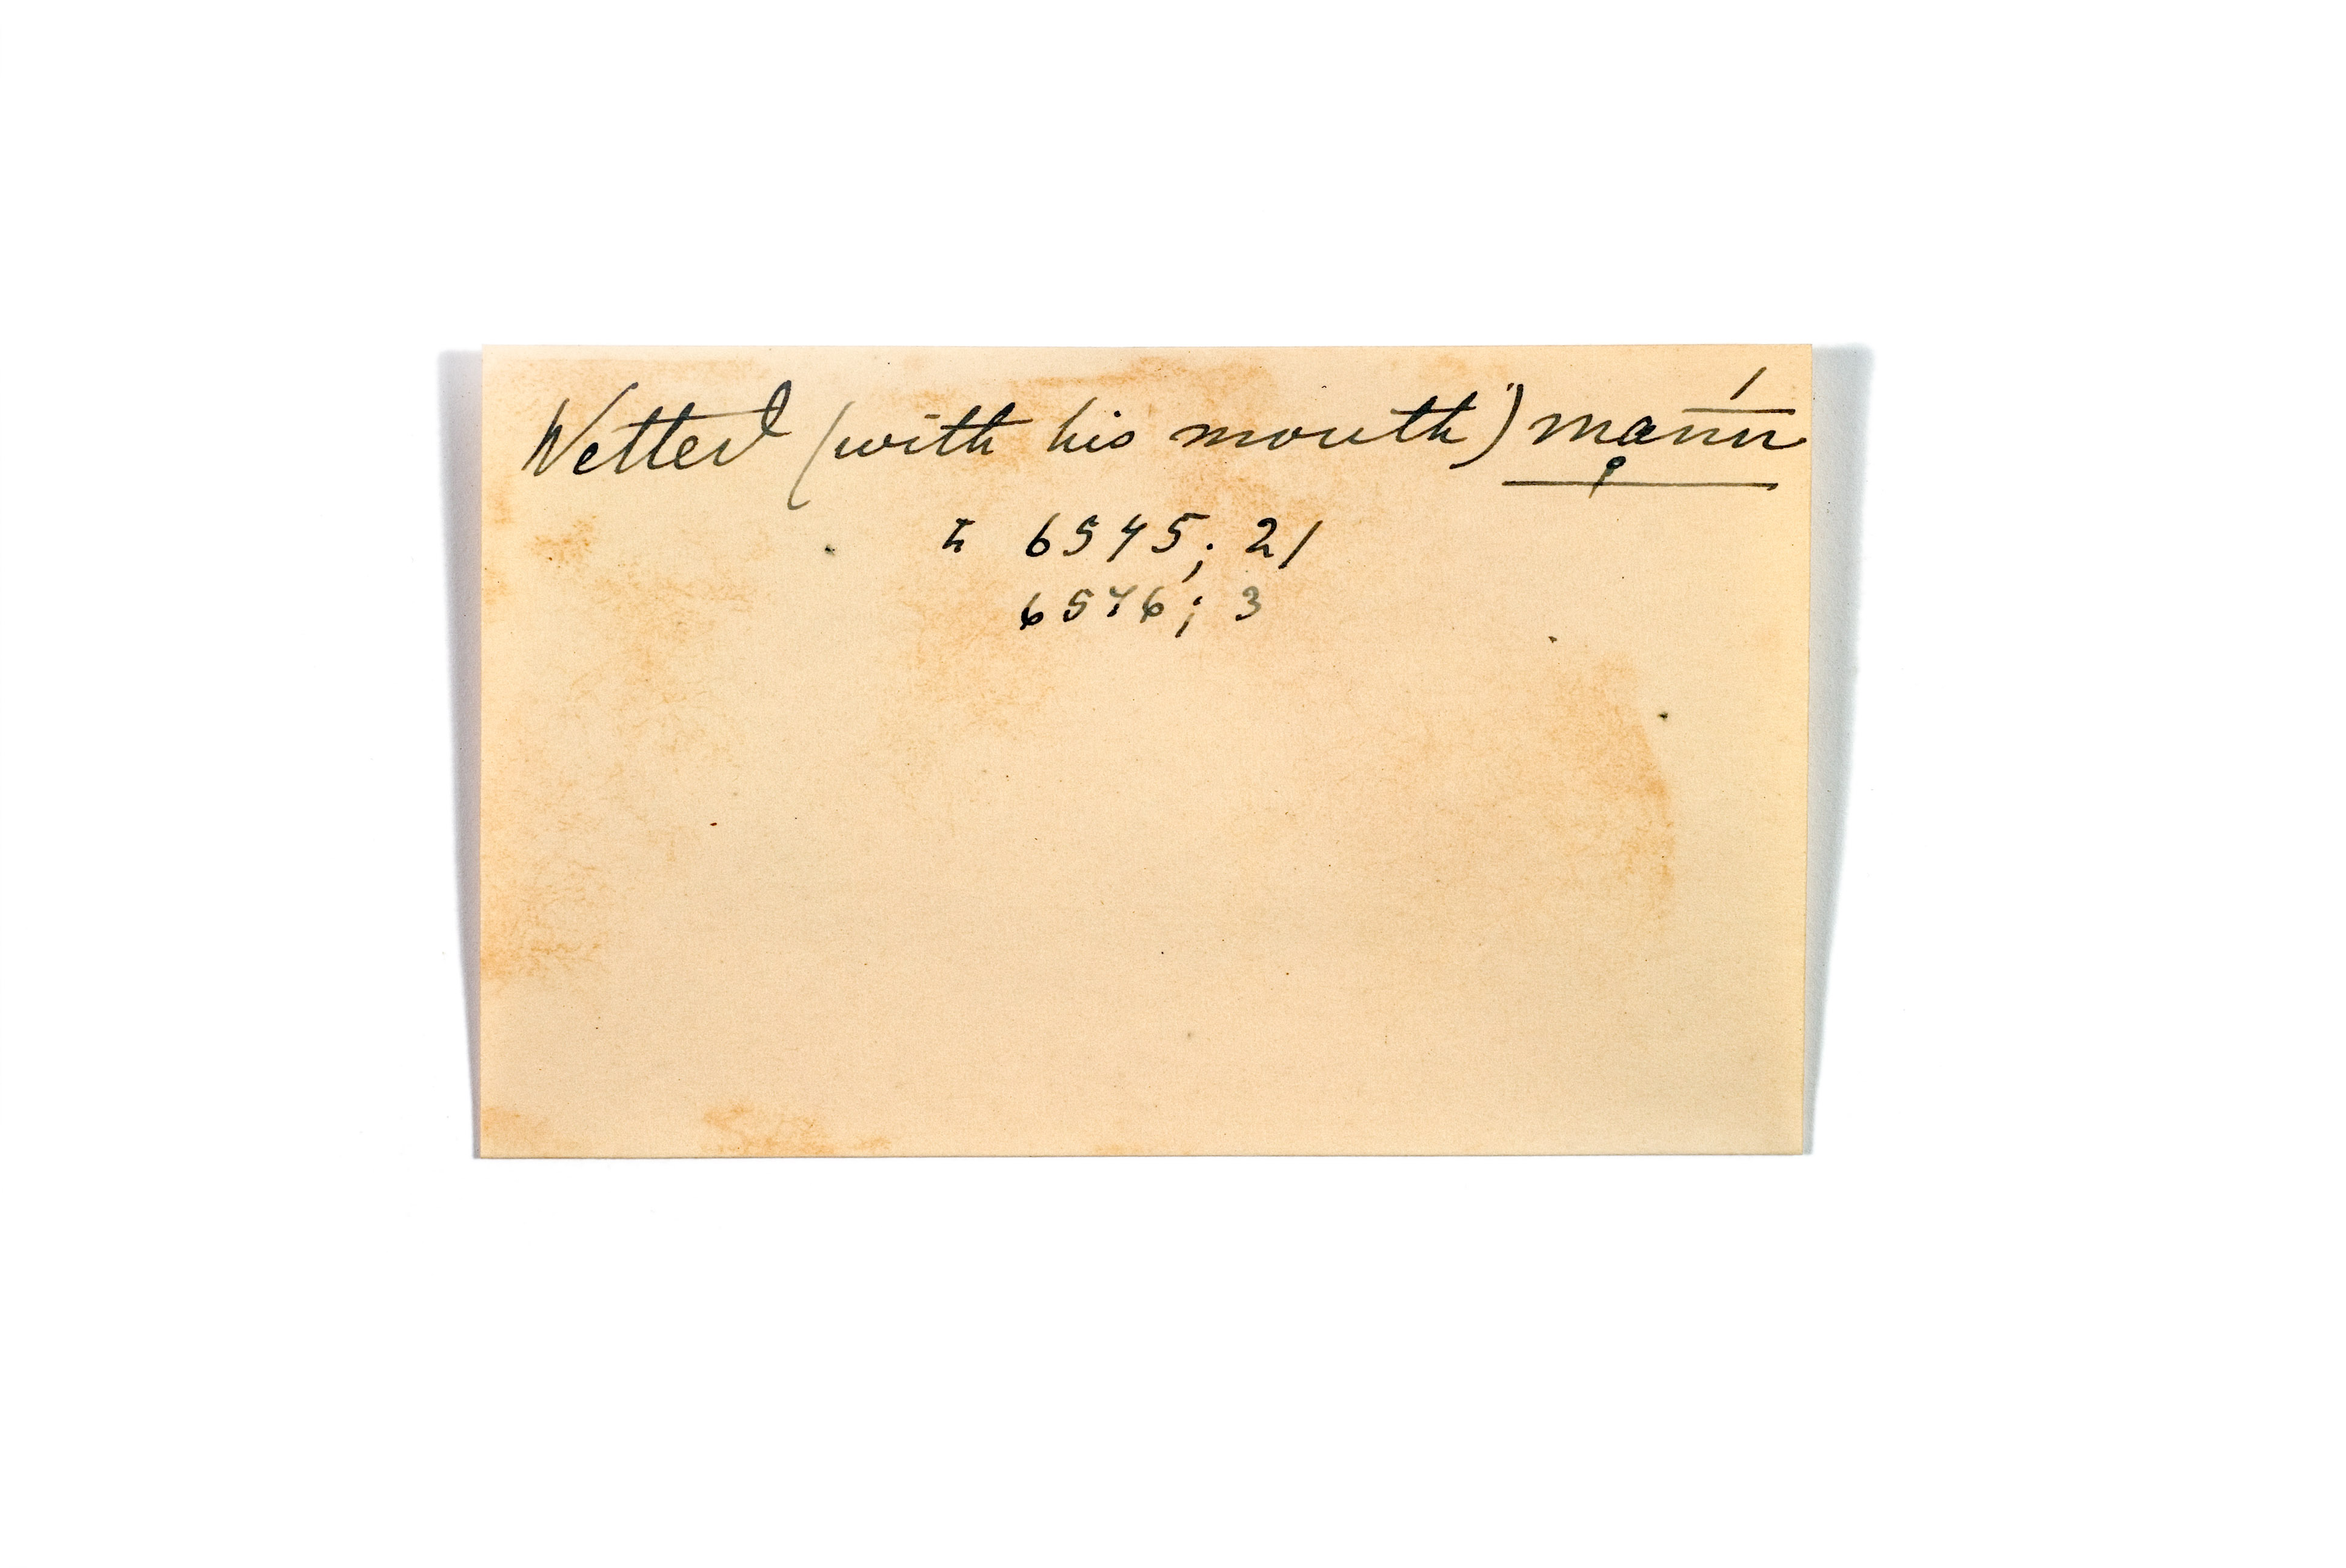 Wetted (with his mouth) mạn̄n̄́
Ł 6545; 21
6546; 3